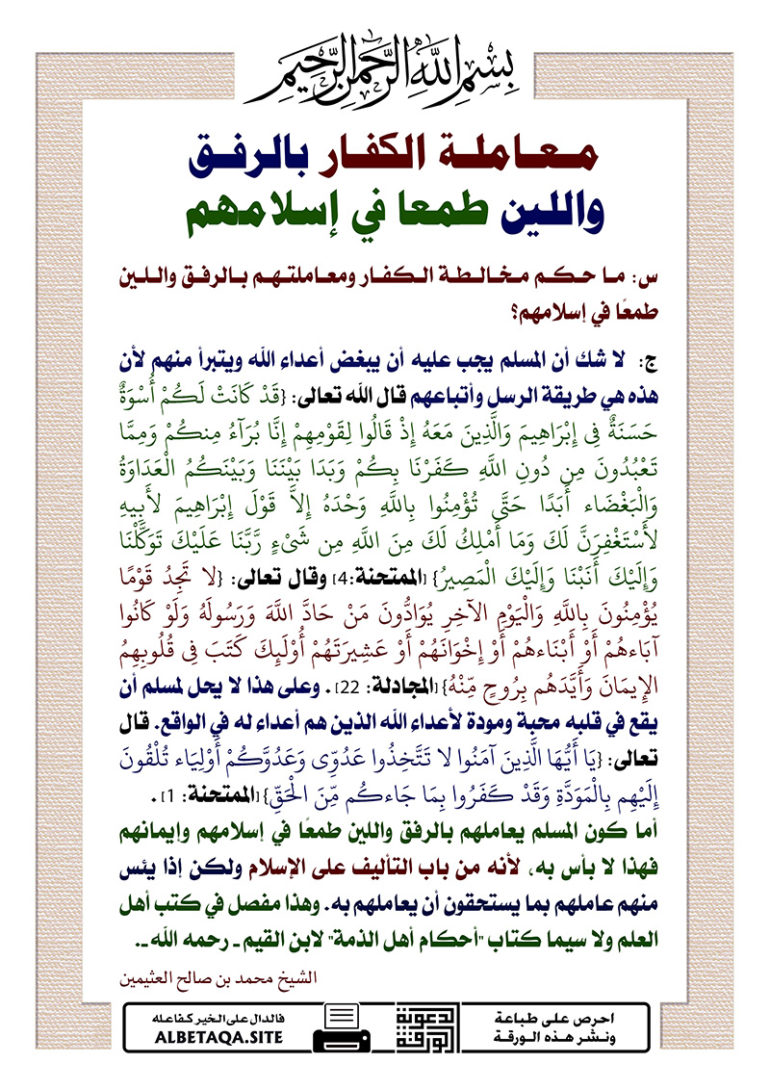 بِسْمِ اللَّهِ الرَّحْمَٰنِ الرَّحِيمِ
معاملة الكفار بالرفق
واللين طمعا في إسلامهم
س: ما حكم مخالطة الكفار ومعاملتهم بالرفق واللين
طمعًا في إسلامهم؟
ج: لا شك أن المسلم يجب عليه أن يبغض أعداء الله ويتبرأ منهم لأن
هذه هي طريقة الرسل وأتباعهم قال الله تعالى: {قَدْ كَانَتْ لَكُمْ أُسْوَةٌ
حَسَنَةٌ فِي إِبْرَاهِيمَ وَالَّذِينَ مَعَهُ إِذْ قَالُوا لِقَوْمِهِمْ إِنَّا بُرَآءُ مِنكُمْ وَمِمَّا
تَعْبُدُونَ مِن دُونِ اللَّهِ كَفَرْنَا بِكُمْ وَبَدَا بَيْنَنَا وَبَيْنَكُمُ الْعَدَاوَةُ
وَالْبَغْضَاء أَبَدًا حَتَّى تُؤْمِنُوا بِاللَّهِ وَحْدَهُ إِلاَّ قَوْلَ إِبْرَاهِيمَ لأَبِيهِ
لأَسْتَغْفِرَنَّ لَكَ وَمَا أَمْلِكُ لَكَ مِنَ اللَّهِ مِن شَيْءٍ رَّبَّنَا عَلَيْكَ تَوَكَّلْنَا
وَإِلَيْكَ أَنَبْنَا وَإِلَيْكَ الْمَصِيرُ} [الممتحنة:4] وقال تعالى: {لا تَجِدُ قَوْمًا
يُؤْمِنُونَ بِاللَّهِ وَالْيَوْمِ الآخِرِ يُوَادُّونَ مَنْ حَادَّ اللَّهَ وَرَسُولَهُ وَلَوْ كَانُوا
آبَاءهُمْ أَوْ أَبْنَاءهُمْ أَوْ إِخْوَانَهُمْ أَوْ عَشِيرَتَهُمْ أُوْلَئِكَ كَتَبَ فِي قُلُوبِهِمُ
الإِيمَانَ وَأَيَّدَهُم بِرُوحٍ مِّنْهُ} [المجادلة: 22]. وعلى هذا لا يحل لمسلم أن
يقع في قلبه محبة ومودة لأعداء الله الذين هم أعداء له في الواقع. قال
تعالى: {يَا أَيُّهَا الَّذِينَ آمَنُوا لا تَتَّخِذُوا عَدُوِّي وَعَدُوَّكُمْ أَوْلِيَاء تُلْقُونَ
إِلَيْهِم بِالْمَوَدَّةِ وَقَدْ كَفَرُوا بِمَا جَاءكُم مِّنَ الْحَقِّ} [الممتحنة: 1].
أما كون المسلم يعاملهم بالرفق واللين طمعًا في إسلامهم وإيمانهم
فهذا لا بأس به، لأنه من باب التأليف على الإسلام ولكن إذا يئس
منهم عاملهم بما يستحقون أن يعاملهم به. وهذا مفصل في كتب أهل
العلم ولا سيما كتاب "أحكام أهل الذمة" لابن القيم ـ رحمه الله ـ.
الشيخ محمد بن صالح العثيمين
احرص على طباعة
ونشر هذه الورقة
الورقة الدعوية
فالدال على الخير كفاعله
ALBETAQA.SITE